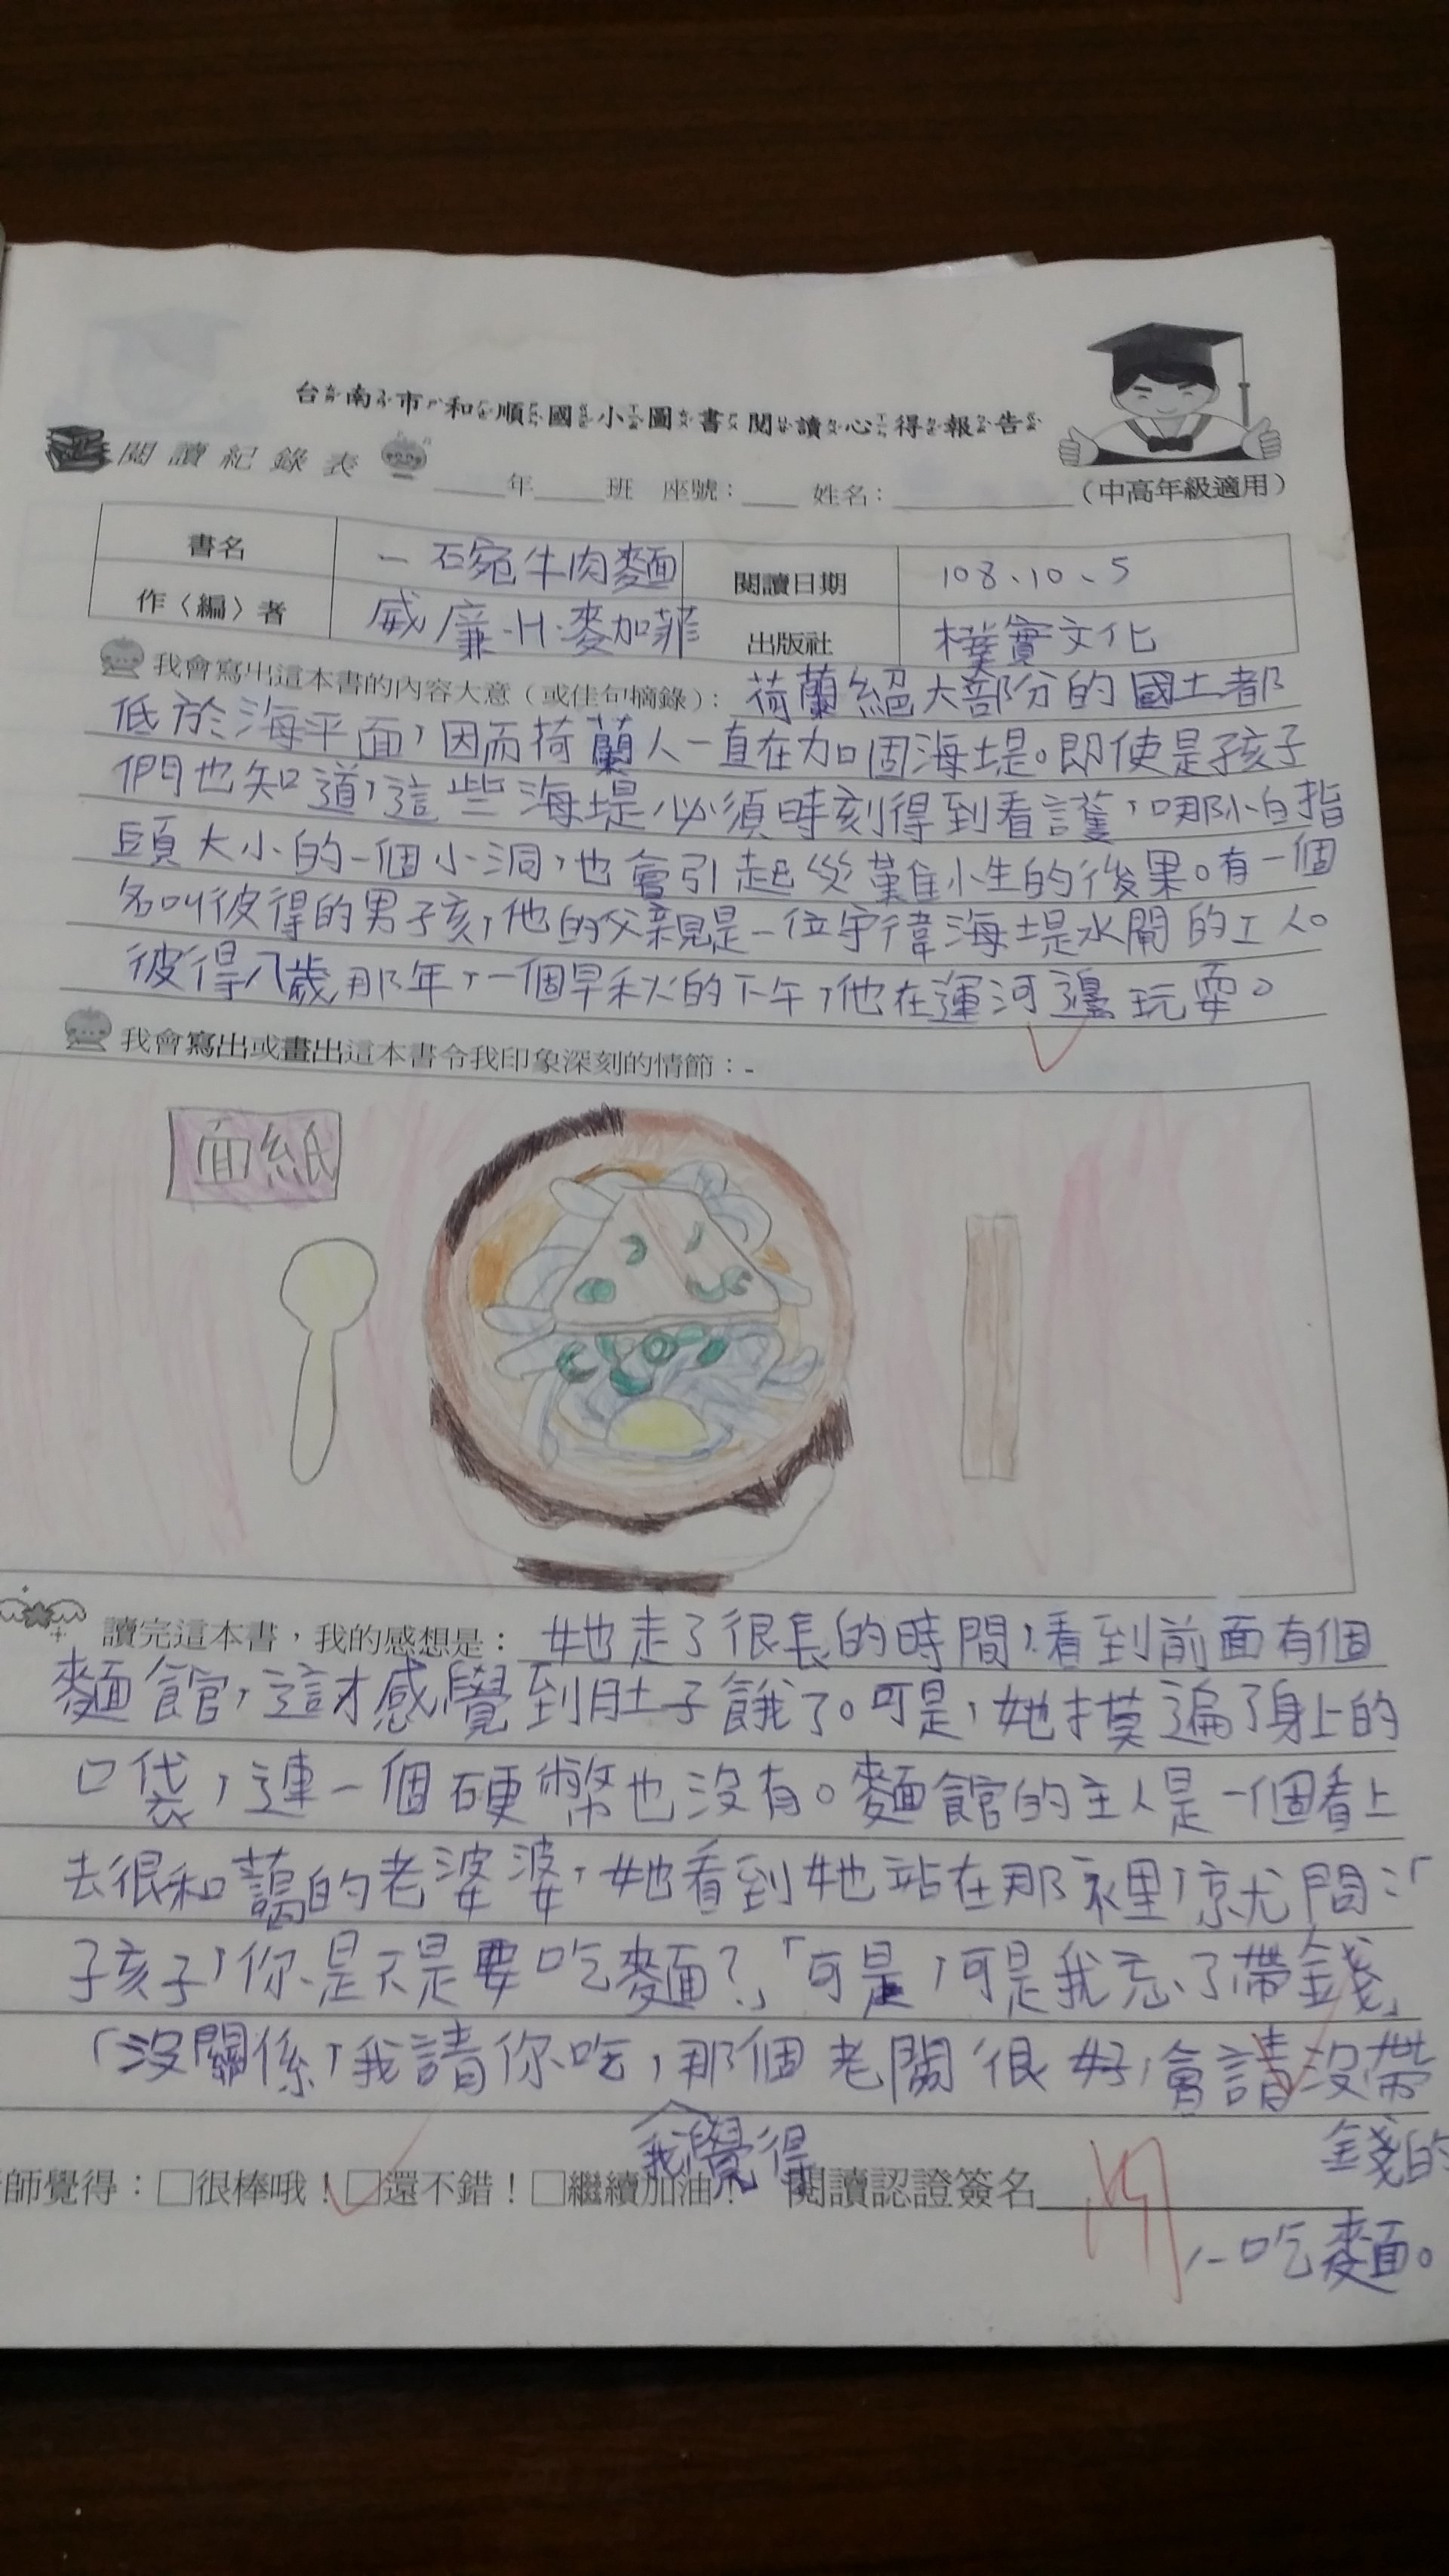 台南市和順國小圖書閱讀心得報告
閱讀紀錄表
____年____班 座號：____ 姓名：__________（中高年級適用）
書名 一碗牛肉麵 閱讀日期 108、10、5
作〈編〉者 威廉·H·麥加菲 出版社 樸實文化
我會寫出這本書的內容大意（或佳句摘錄）：荷蘭絕大部分的國土都
低於海平面，因而荷蘭人一直在加固海堤。即使是孩子
們也知道，這些海堤必須時刻得到看護，哪怕指
頭大小的一個小洞，也會引起災難性的後果。有一個
名叫彼得的男孩，他的父親是一位守衛海堤水閘的工人。
彼得八歲那年，一個早秋的下午，他在運河邊玩耍。
我會寫出或畫出這本書令我印象深刻的情節：-
面紙
讀完這本書，我的感想是：她走了很長的時間，看到前面有個
麵館，這才感覺到肚子餓了。可是，她摸遍了身上的
口袋，連一個硬幣也沒有。麵館的主人是一個看上
去很和藹的老婆婆，她看到她站在那裡，就問：「
子孩子，你是不是要吃麵？」「可是，可是我忘了帶錢」
「沒關係，我請你吃，那個老闆很好，會請沒帶
我覺得
錢的
師覺得：□很棒哦！□還不錯！□繼續加油！ 閱讀認證簽名
人吃麵。